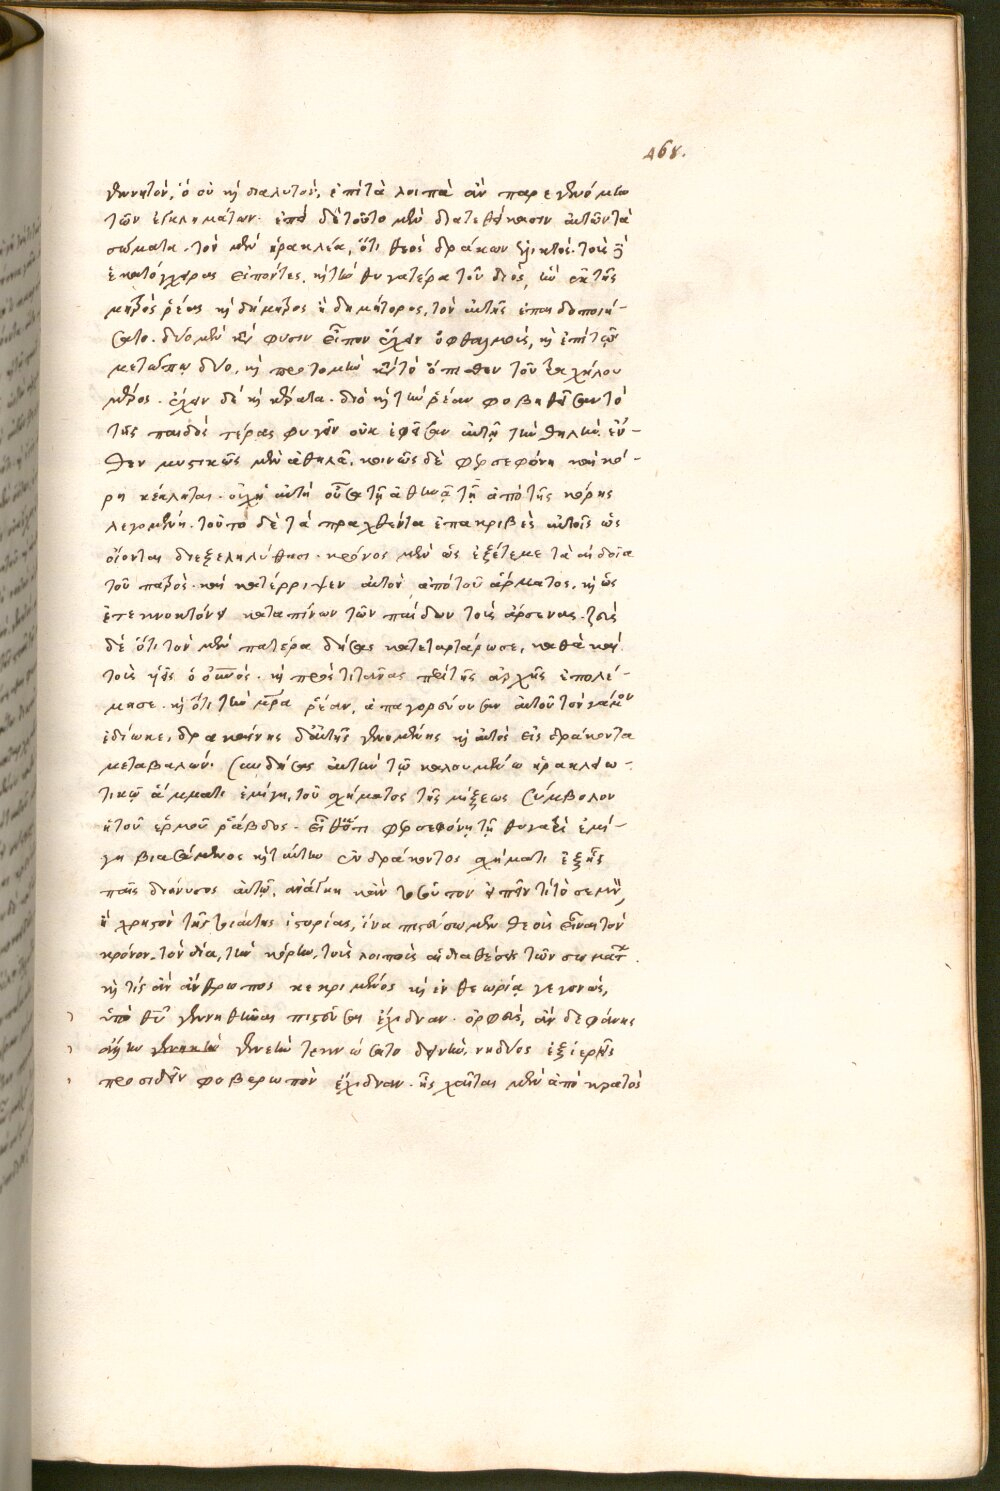 468.
γεννητόν, ὁ οὐ καὶ διαλυτόν, ἐπὶ τὰ λοιπὰ ἂν παρεγενόμην
τῶν ἐγκλημάτων. ἐπεὶ δὲ τοῦτο μὲν διατεθείκασιν αὐτῶν τὰ
σώματα. τὸν μὲν ἡρακλέα, ὅτι θεὸς δράκων ἑλικτός. τοὺς δὲ
ἑκατόγχειρας εἰπόντες. καὶ τὴν θυγατέρα τοῦ διός, ἣν ἐκ τῆς
μητρὸς ῥέας καὶ δήμητρος ἢ δημήτορος, τὸν αὐτῆς ἐπαιδοποιή-
σατο. δύο μὲν κατὰ φύσιν εἶπον ἔχειν ὀφθαλμοὺς, καὶ ἐπὶ τῷ
μετώπῳ δύο. καὶ προτομὴν κατὰ τὸ ὄπισθεν τοῦ τραχήλου
μέρος. ἔχειν δὲ καὶ κέρατα. διὸ καὶ τὴν ῥέαν φοβηθεῖσαν τὸ
τῆς παιδὸς τέρας φυγεῖν οὐκ ἐφεῖσαν αὐτῇ τὴν θηλήν. ἔν-
θεν μυστικῶς μὲν ἀθηλᾶ, κοινῶς δὲ φερσεφόνη καὶ κό-
ρη κέκληται. οὐχ ἡ αὐτὴ οὖσα τῇ ἀθηνᾷ τῇ ἀπὸ τῆς κόρης
λεγομένη. τοῦτο δὲ τὰ πραχθέντα ἐπακριβὲς αὐτοῖς ὡς
οἴονται διεξεληλύθασι. κρόνος μὲν ὡς ἐξέτεμε τὰ αἰδοῖα
τοῦ πατρός. καὶ κατέρριψεν αὐτὸν ἀπὸ τοῦ ἅρματος. καὶ ὡς
ἐτεκνοκτόνει καταπίνων τῶν παίδων τοὺς ἄρσενας. ζεὺς
δὲ ὅτι τὸν μὲν πατέρα δήσας κατεταρτάρωσε, καθὰ καὶ
τοὺς υἱεῖς ὁ οὐρανός. καὶ πρὸς τιτᾶνας περὶ τῆς ἀρχῆς ἐπολέ-
μησε. καὶ ὅτι τὴν μητέρα ῥέαν, ἀπαγορεύουσαν αὐτοῦ τὸν γάμον
ἐδίωκε, δρακαίνης δ' αὐτῆς γενομένης καὶ αὐτὸς εἰς δράκοντα
μεταβαλών. συνδήσας αὐτὴν τῷ καλουμένῳ ἡρακλεω-
τικῷ ἅμματι ἐμίγη. τοῦ σχήματος τῆς μίξεως σύμβολον
ἡ τοῦ ἑρμοῦ ῥάβδος. εἶθ' ὅτι φερσεφόνῃ τῇ θυγατρὶ ἐμί-
γη βιασάμενος καὶ ταύτην ἐν δράκοντος σχήματι ἐξ ἧς
παῖς διόνυσος αὐτῷ. ἀνάγκη κἂν τοσοῦτον εἰπεῖν τί τὸ σεμνὸν,
ἢ χρηστὸν τῆς τοιαύτης ἱστορίας, ἵνα πιστεύσωμεν θεοὺς εἶναι τὸν
κρόνον. τὸν δία, τὴν κόρην. τοὺς λοιποὺς αἱ διαθέσεις τῶν σωμάτων.
καὶ τίς ἂν ἄνθρωπος κεκριμένος καὶ ἐν θεωρίᾳ γεγονὼς,
ὑπὸ θεοῦ γεννηθῆναι πιστεύσαι ἔχιδναν. ὀρφεὺς, ἂν δὲ φάνης
ἄλλην γενεὴν τεκνώσατο δεινὴν. νηδύος ἐξ ἱερῆς
προσιδεῖν φοβερωπὸν ἔχιδναν. ἧς χαῖται μὲν ἀπὸ κρατὸς